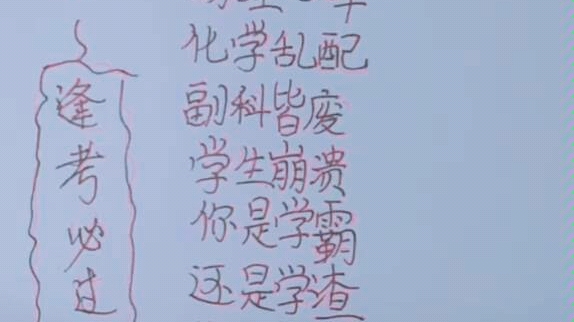 化学乱配
副科皆废
学生崩溃
你是学霸
还是学渣
逢考必过